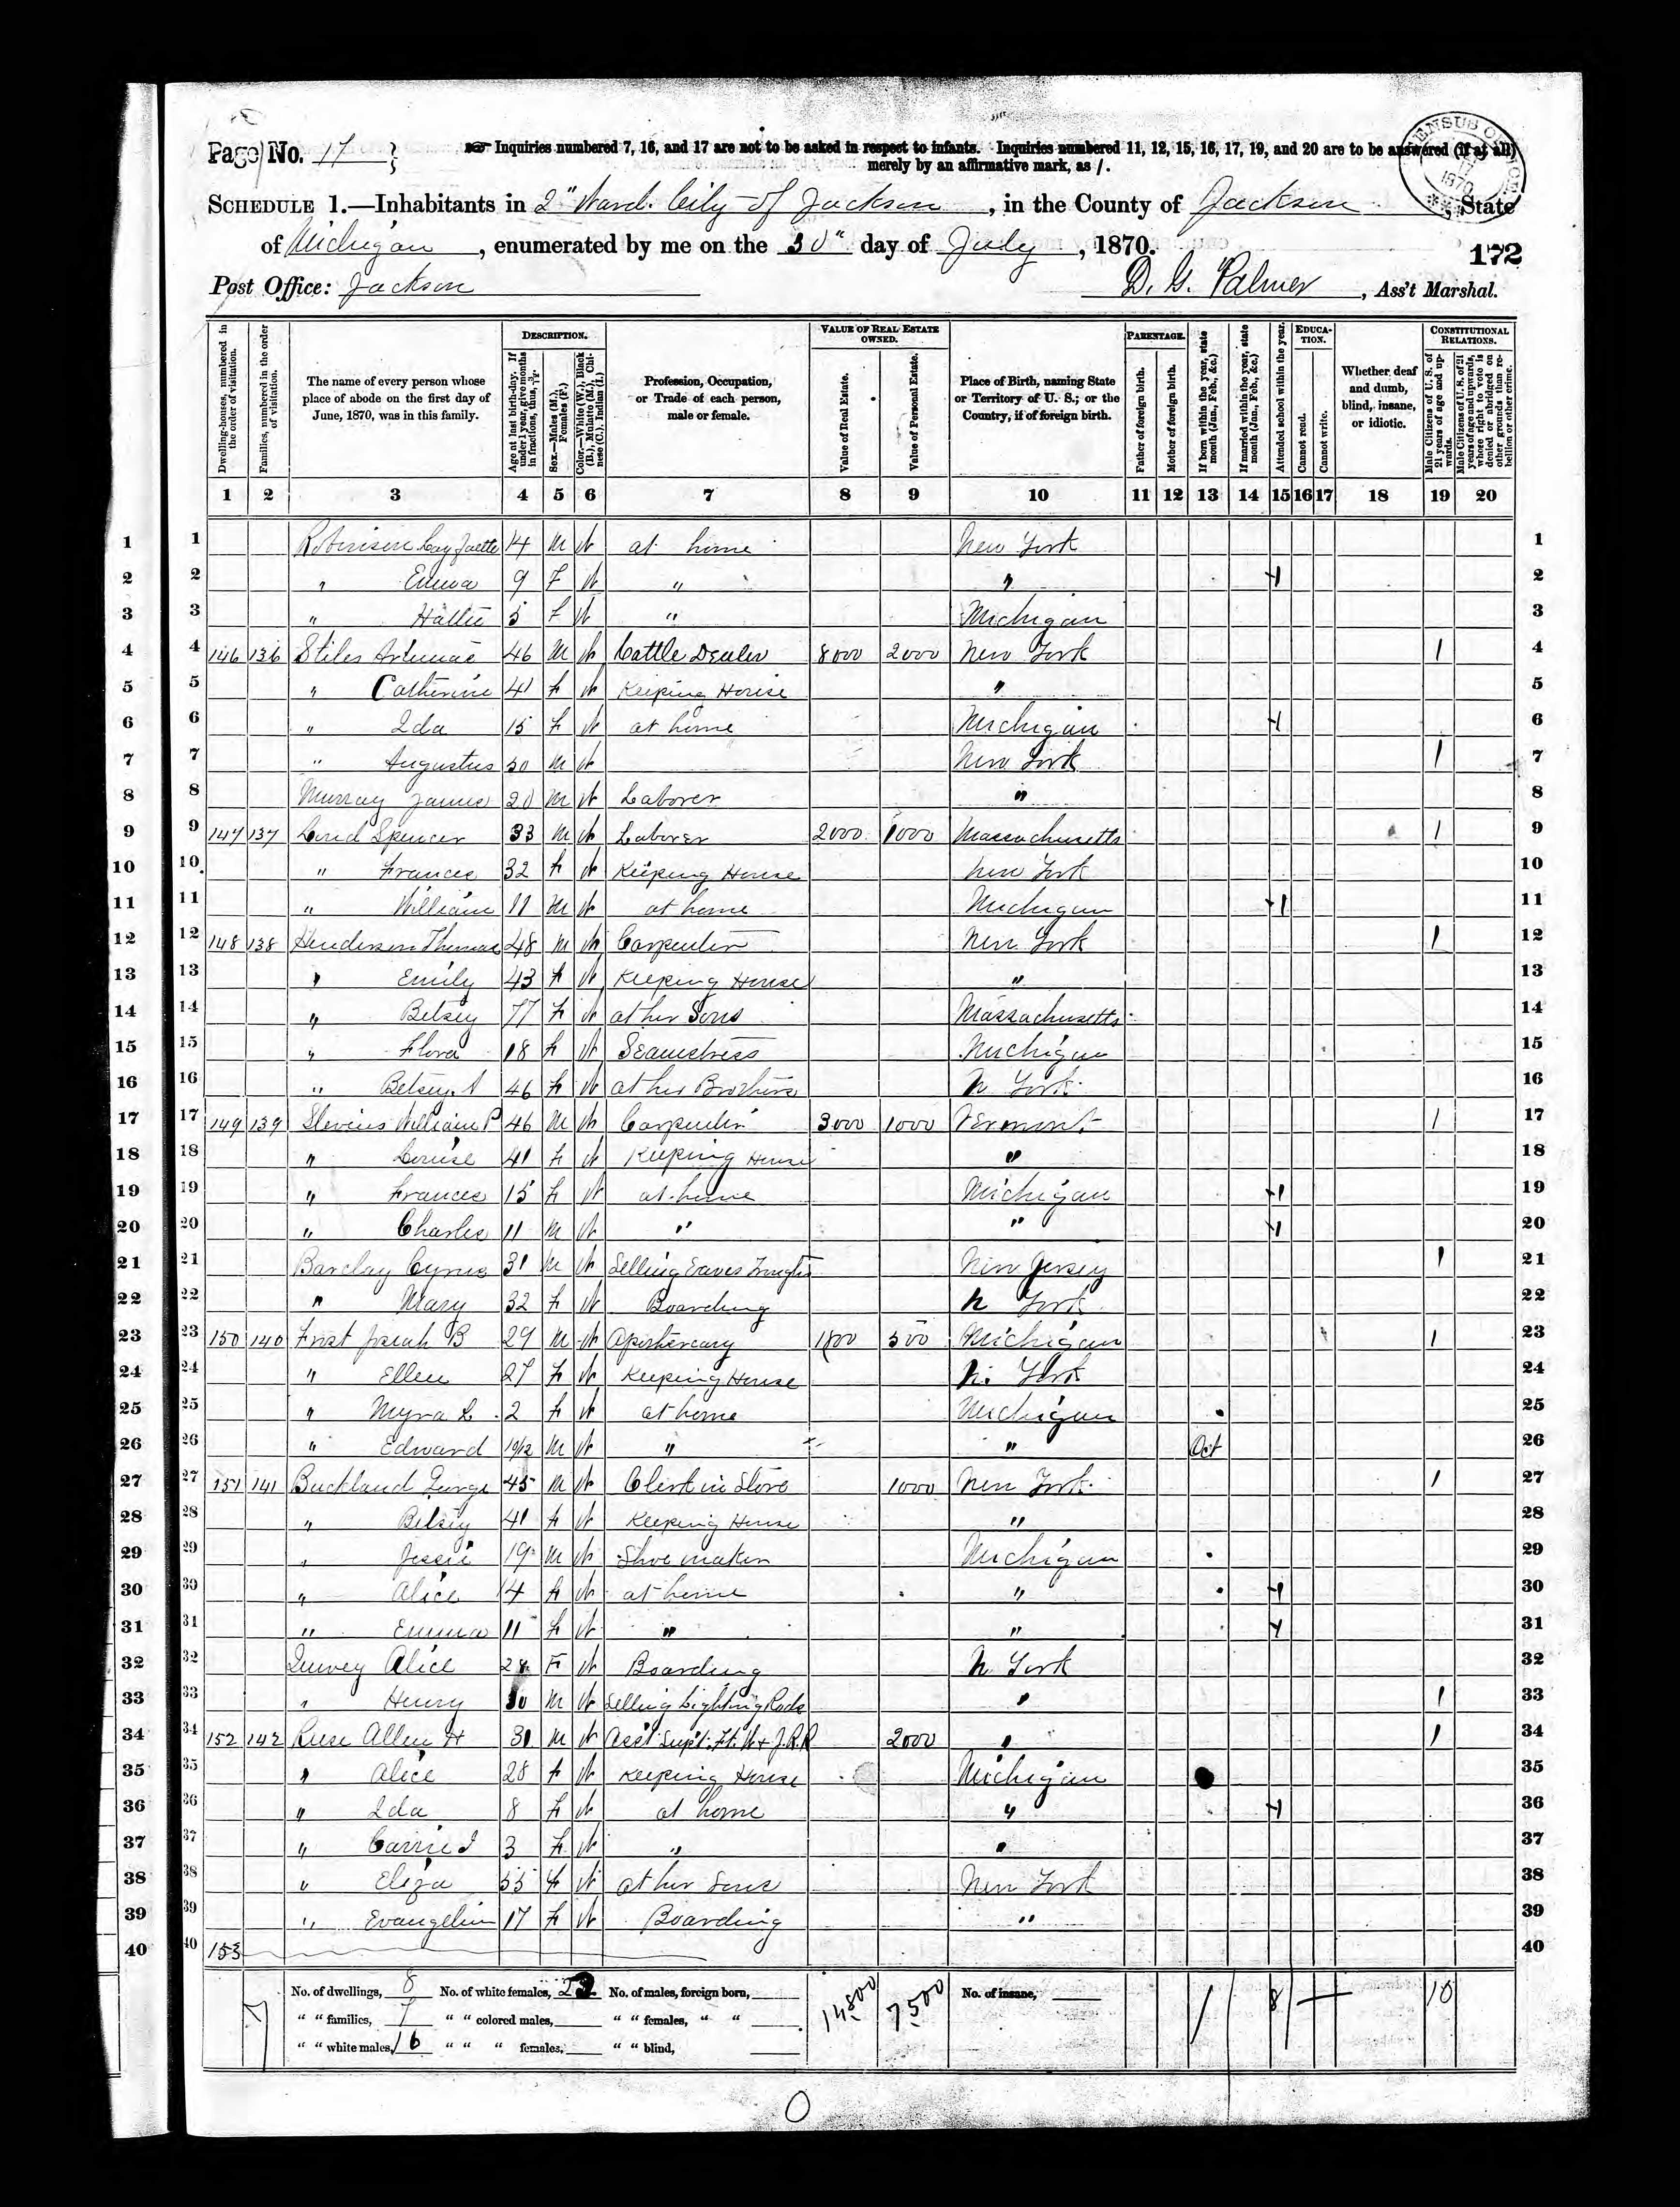 Page No. 17
Inquiries numbered 7, 16, and 17 are not to be asked in respect to infants. Inquiries numbered 11, 12, 15, 16, 17, 19, and 20 are to be answered (if at all)
merely by an affirmative mark, as /.
SCHEDULE 1.—Inhabitants in 2" Ward City of Jackson, in the County of Jackson, State
of Michigan, enumerated by me on the 30" day of July, 1870.
172
Post Office: Jackson
D. G. Palmer, Ass't Marshal.
CENSUS 1870
Dwelling-houses, numbered in the order of visitation.
Families, numbered in the order of visitation.
The name of every person whose place of abode on the first day of June, 1870, was in this family.
DESCRIPTION.
Age at last birth-day. If under 1 year, give months in fractions, thus, 3/12.
Sex.—Males (M.), Females (F.)
Color.—White (W.), Black (B.), Mulatto (M.), Chinese (C.), Indian (I.)
Profession, Occupation, or Trade of each person, male or female.
VALUE OF REAL ESTATE OWNED.
Value of Real Estate.
Value of Personal Estate.
Place of Birth, naming State or Territory of U. S.; or the Country, if of foreign birth.
PARENTAGE.
Father of foreign birth.
Mother of foreign birth.
If born within the year, state month (Jan., Feb., &c.)
If married within the year, state month (Jan., Feb., &c.)
Attended school within the year.
EDUCATION.
Cannot read.
Cannot write.
Whether deaf and dumb, blind, insane, or idiotic.
CONSTITUTIONAL RELATIONS.
Male Citizens of U. S. of 21 years of age and upwards.
Male Citizens of U. S. of 21 years of age and upwards, whose right to vote is denied or abridged on other grounds than rebellion or other crime.
1 2 3 4 5 6 7 8 9 10 11 12 13 14 15 16 17 18 19 20
1 1 Robinson 14 M W at home New York 1
2 2 " Emma 9 F W " " 1 2
3 3 " Hattie 5 F W " Michigan 3
4 4 146 136 Stiles 46 M W Cattle Dealer 8000 2000 New York 1 4
5 5 " Catherine 41 F W Keeping House " 5
6 6 " Ida 15 F W at home Michigan 1 6
7 7 " Augustus M W New York 1 7
8 8 Murray James 20 M W Laborer " 8
9 9 147 137 Spencer 33 M W Laborer 2000 1000 Massachusetts 1 9
10 10 " Frances 32 F W Keeping House New York 10
11 11 " William 11 M W at home Michigan 1 11
12 12 148 138 Henderson Thomas 48 M W Carpenter New York 1 12
13 13 " Emily 43 F W Keeping House " 13
14 14 " Betsey 77 F W at her Sons Massachusetts 14
15 15 " Flora 18 F W Seamstress Michigan 15
16 16 " Betsey A 46 F W at her Brothers N York 16
17 17 149 139 Stevens William P 46 M W Carpenter 3000 1000 Vermont 1 17
18 18 " Louise 41 F W Keeping House " 18
19 19 " Frances 15 F W at home Michigan 1 19
20 20 " Charles 11 M W " " 1 20
21 21 Barclay Cyrus 31 M W Selling Eaves Troughs New Jersey 1 21
22 22 " Mary 32 F W Boarding N York 22
23 23 150 140 Frost Josiah B 29 M W Apothercary 1800 500 Michigan 1 23
24 24 " Ellen 27 F W Keeping House N. York 24
25 25 " Myra L 2 F W at home Michigan 25
26 26 " Edward 10/12 M W " " Oct 26
27 27 151 141 Buckland George 45 M W Clerk in Store 1000 New York 1 27
28 28 " Betsey 41 F W Keeping House " 28
29 29 " Jessie 19 M W Shoe maker Michigan 29
30 30 " Alice 14 F W at home " 1 30
31 31 " Emma 11 F W " " 1 31
32 32 Alice 28 F W Boarding N York 32
33 33 " Henry 30 M W Selling Lightning Rods " 1 33
34 34 152 142 Reese Allen H 31 M W Ass't Sup't. Ft. W & J. R.R 2000 " 1 34
35 35 " Alice 28 F W Keeping House Michigan 35
36 36 " Ida 8 F W at home " 1 36
37 37 " Carrie I 3 F W " " 37
38 38 " Eliza 55 F W at her Sons New York 38
39 39 " Evangeline 17 F W Boarding " 39
40 40 153 40
No. of dwellings, 8 No. of white females, 23 No. of males, foreign born, 14800 7500 No. of insane, 1 8 10
" " families, 7 " " colored males, " " females, " "
" " white males, 16 " " " females, " " blind,